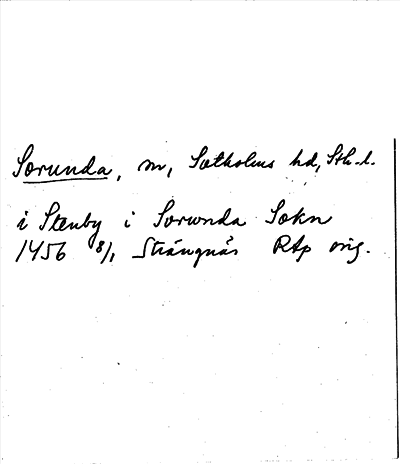 Sorunda, sn, Sotholms hd, Sth. l.
i Stenby i Sorunda Sokn
1456 8/1 Strängnäs RAp orig.